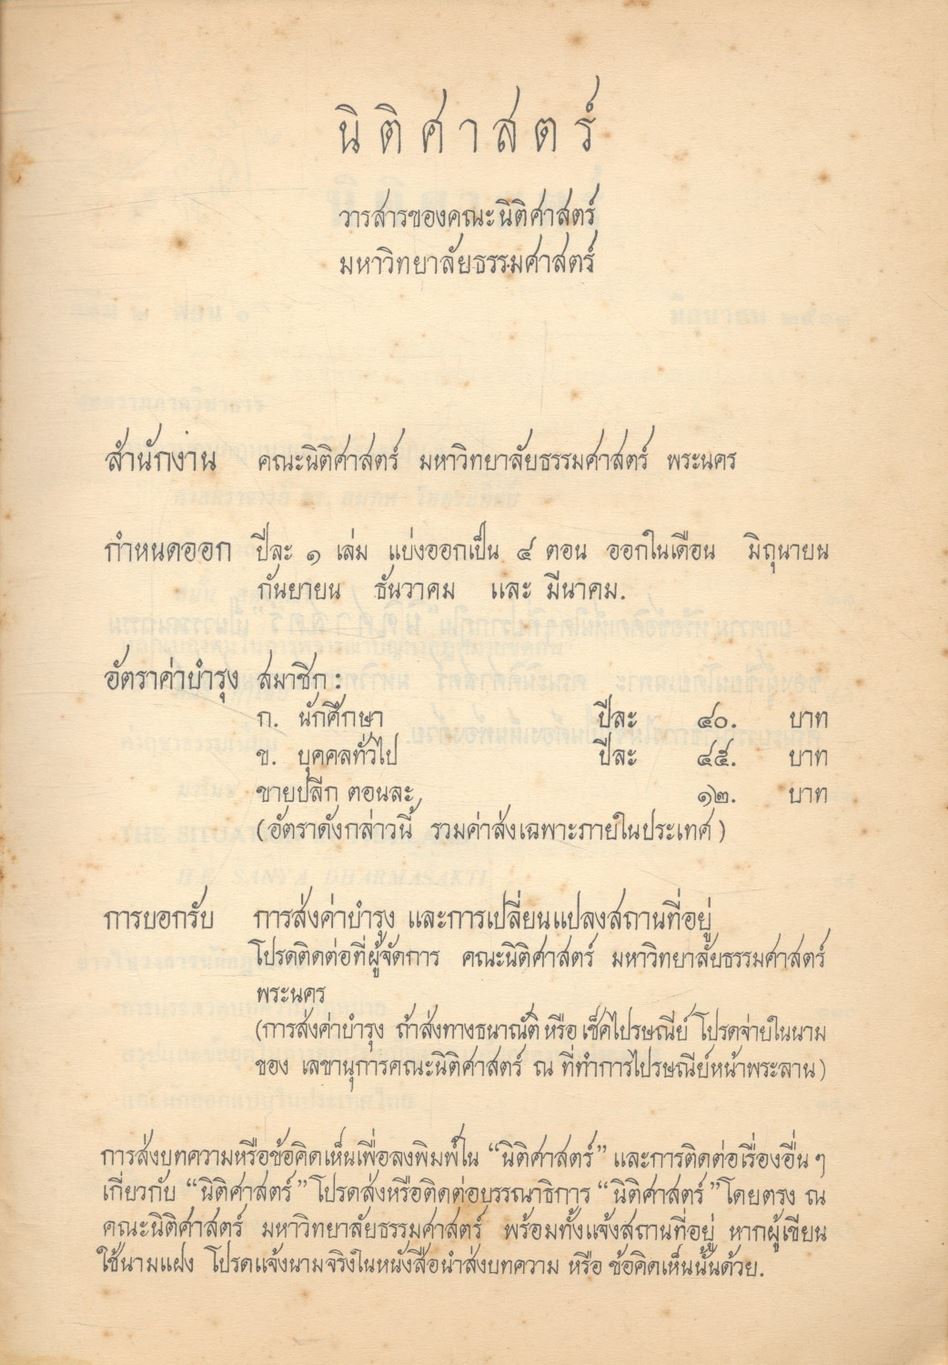 นิติศาสตร์
วารสารของคณะนิติศาสตร์
มหาวิทยาลัยธรรมศาสตร์
สำนักงาน คณะนิติศาสตร์ มหาวิทยาลัยธรรมศาสตร์ พระนคร
กำหนดออก ปีละ ๑ เล่ม แบ่งออกเป็น ๔ ตอน ออกในเดือน มิถุนายน
กันยายน ธันวาคม และ มีนาคม.
อัตราค่าบำรุง สมาชิก :
ก. นักศึกษา ปีละ ๔๐. บาท
ข. บุคคลทั่วไป ปีละ ๔๕. บาท
ขายปลีก ตอนละ ๑๒. บาท
(อัตราดังกล่าวนี้ รวมค่าส่งเฉพาะภายในประเทศ)
การบอกรับ การส่งค่าบำรุง และการเปลี่ยนแปลงสถานที่อยู่
โปรดติดต่อที่ผู้จัดการ คณะนิติศาสตร์ มหาวิทยาลัยธรรมศาสตร์
พระนคร
(การส่งค่าบำรุง ถ้าส่งทางธนาณัติ หรือ เช็คไปรษณีย์ โปรดจ่ายในนาม
ของ เลขานุการคณะนิติศาสตร์ ณ ที่ทำการไปรษณีย์หน้าพระลาน)
การส่งบทความหรือข้อคิดเห็นเพื่อลงพิมพ์ใน “นิติศาสตร์” และการติดต่อเรื่องอื่น ๆ
เกี่ยวกับ “นิติศาสตร์” โปรดส่งหรือติดต่อบรรณาธิการ “นิติศาสตร์” โดยตรง ณ
คณะนิติศาสตร์ มหาวิทยาลัยธรรมศาสตร์ พร้อมทั้งแจ้งสถานที่อยู่ หากผู้เขียน
ใช้นามแฝง โปรดแจ้งนามจริงในหนังสือนำส่งบทความ หรือ ข้อคิดเห็นนั้นด้วย.